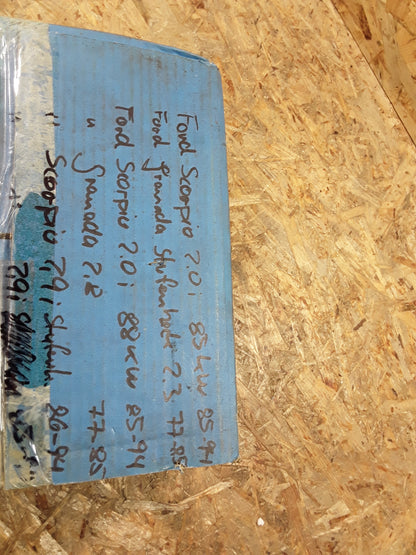 Ford Scorpio 2.0i 85kW 85-94
Ford Granada Stufenheck 2.3 77-85
Ford Scorpio 2.0i 88kW 85-94
" Granada 2.8 77-85
" Scorpio 2,9i Stufenh. 86-94
" " 2,9i